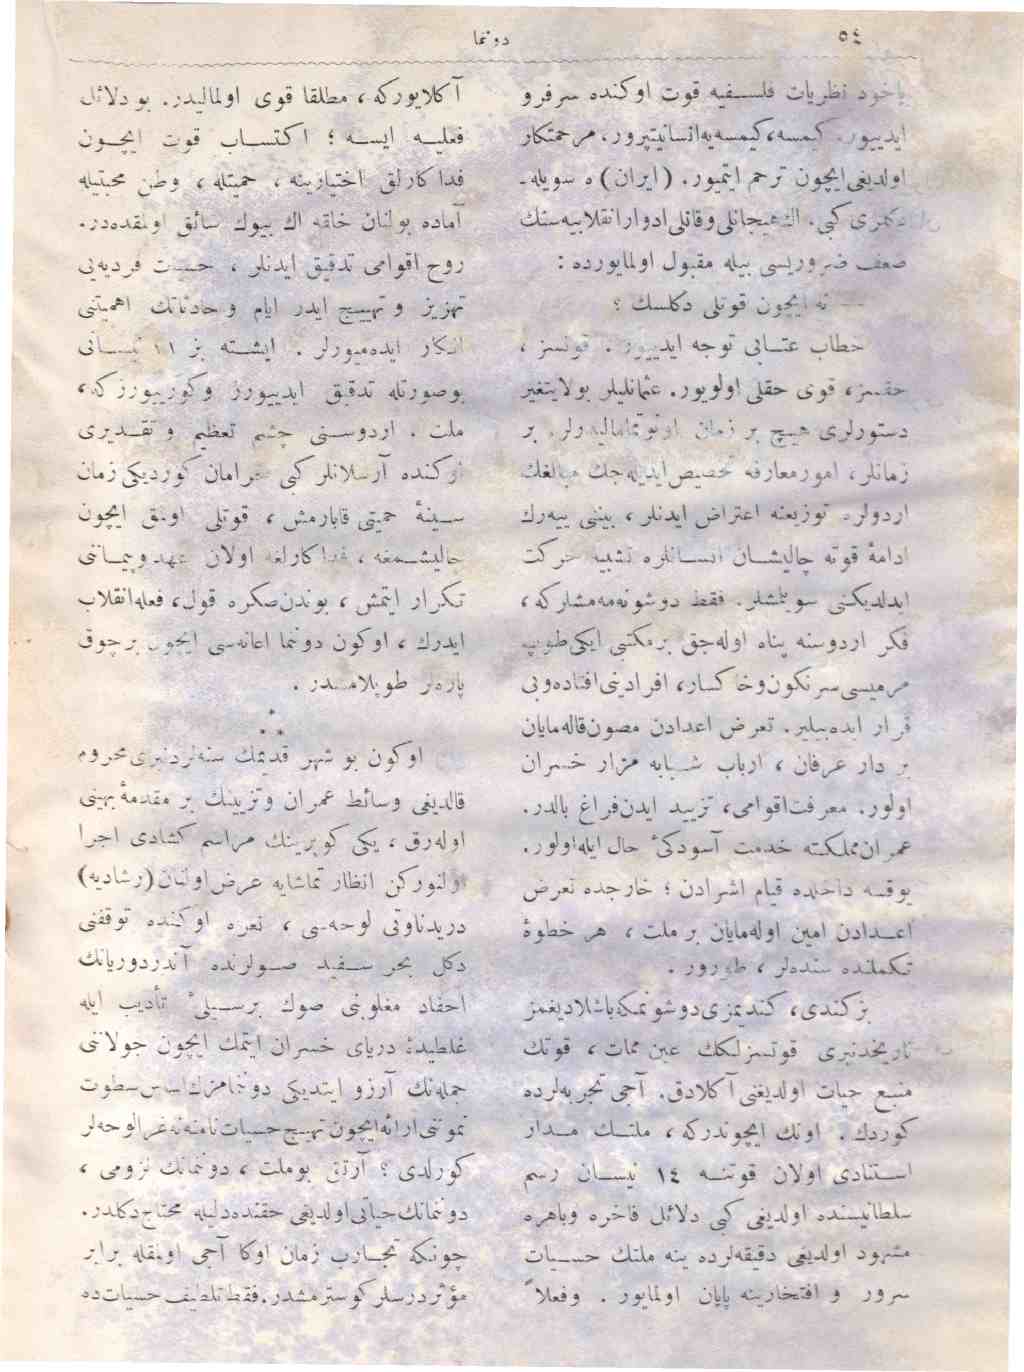 ٥٤
دونما
ياخود نظريات فلسفيه قوت اوكنده سرفرو
ايدييور. كيمسه، كيمسه‌يه انسانيتپرور، مرحمتكار
اولديغى ايچون ترحم ايتميور. (ايران) ه سويله‌ـ
كلرى كبى. اك هيجانلى وقانلى ادوار انقلابيه‌سنك
ضعف ضروريسى بيله مقبول اولمايورده :
— نه ايچون قوتلى دكلسك ؟
خطاب عتابى توجه ايدييور. قوتسز ،
حقسز، قوى حقلى اولويور. عثمانليلر بولايتغير
دستورلرى هيچ بر زمان اونوتماماليدرلر. بر
زمانلر، امور معارفه تخصيص ايديله‌جك مبالغك
اردولره توزيعنه اعتراض ايدنلر، بيننى ييه‌رك
ادامهٔ قوته چاليشان انسانلره تشبيه حركت
ايدلديكنى سويلمشلر. فقط دوشونه‌مه‌مشلركه،
فكر اردوسنه پناه اوله‌جق برمكتبى ايكى طوپ
مرميسى سرنكون وخاكسار، افرادينى افتاده وبى
قرار ايده‌بيلير. تعرض اعدادن مصون قاله‌مايان
بر دار عرفان ، ارباب شبابه مزار خسران
اولور. معرفت اقوامى، تزييد ايدن فراغ بالدر.
عمران مملكته خدمت آسودكئ حال ايله اولور.
يوقسه داخلده قيام اشرادن ؛ خارجده تعرض
اعدادن امين اوله‌مايان برملت ، هر خطوهٔ
تكملنده سنده‌لر ، طورور .
بزكندى، كنديمزى دوشونمكه باشلاديغمز
تاريخدنبرى قوتسزلكك عين ممات ، قوتك
منبع حيات اولديغنى آكلادق. آجى تجربه‌لرده
كوردك . اونك ايچوندركه ، ملتك مدار
استنادى اولان قوتنه ١٤ نيسان رسم
سلطانيسنده اولديغى كبى دلائل فاخره وباهره
مشهود اولديغى دقيقه‌لرده ينه ملتك حسيات
سرور و افتخارينه پايان اولمايور . وفعلاً
آكلايوركه ، مطلقا قوى اولماليدر. بو دلائل
فعليه ايسه ؛ اكتساب قوت ايچون
فداكارلق اختيارينه ، حميتله ، وطن محبتيله
آماده بولنان خلقه اك بيوك سائق اولمقده‌در.
روح اقوامى تدقيق ايدنلر ، حسيات فرديه‌يى
تهزيز و تهييج ايدر ايام و حادثاتك اهميتنى
انكار ايده‌ميورلر . ايشته بز ١١ نيسانى
بوصورتله تدقيق ايدييورز وكورييورزكه ،
ملت . اردوسنى چشم تعظيم و تقديرى
اوكنده آرسلانلر كبى خرامان كورديكى زمان
سينهٔ حميتى قابارمش ، قوتلى اولمق ايچون
چاليشمغه ، فداكارلغه اولان عهد وپيماننى
تكرار ايتمش ، بوندن صكره قول، فعله انقلاب
ايدرك ، اوكون دونما اعانه‌سى ايچون برچوق
پاره‌لر طوپلامشدر .
*
* *
اوكون بو شهر قديمك سنه‌لردنبرى محروم
قالديغى وسائط عمران وتزيينك بر مقدمهٔ بهينى
اوله‌رق ، يكى كوپرينك مراسم كشادى اجرا
اولنوركن انظار تماشايه عرض اولنان (رشاديه)
دريدناوتى لوحه‌سى ، نعره اوكنده توقفنى
دكل بحر سفيد صولرنده آندردوريانك
احفاد مغلوبنى صوك برسيلئ تأديب ايله
غلطيدهٔ درياى خسران ايتمك ايچون جولاننى
جمله‌نك آرزو ايتديكى دونمامزك اساس سطوت
نمونه‌نى ارائه ايچون تهييج حسيات نامنه نه غرا لوحه‌لر
كورلدى ؟ آرتق بوملت ، دونمانك لزومى ،
دونمانك حياتى اولديغى حقنده دليله محتاج دكلدر.
چونكه تجارب زمان اوكا آجى اولمقله برابر
مؤثر درسلر كوسترمشدر. فقط تلطيف حسيات ده